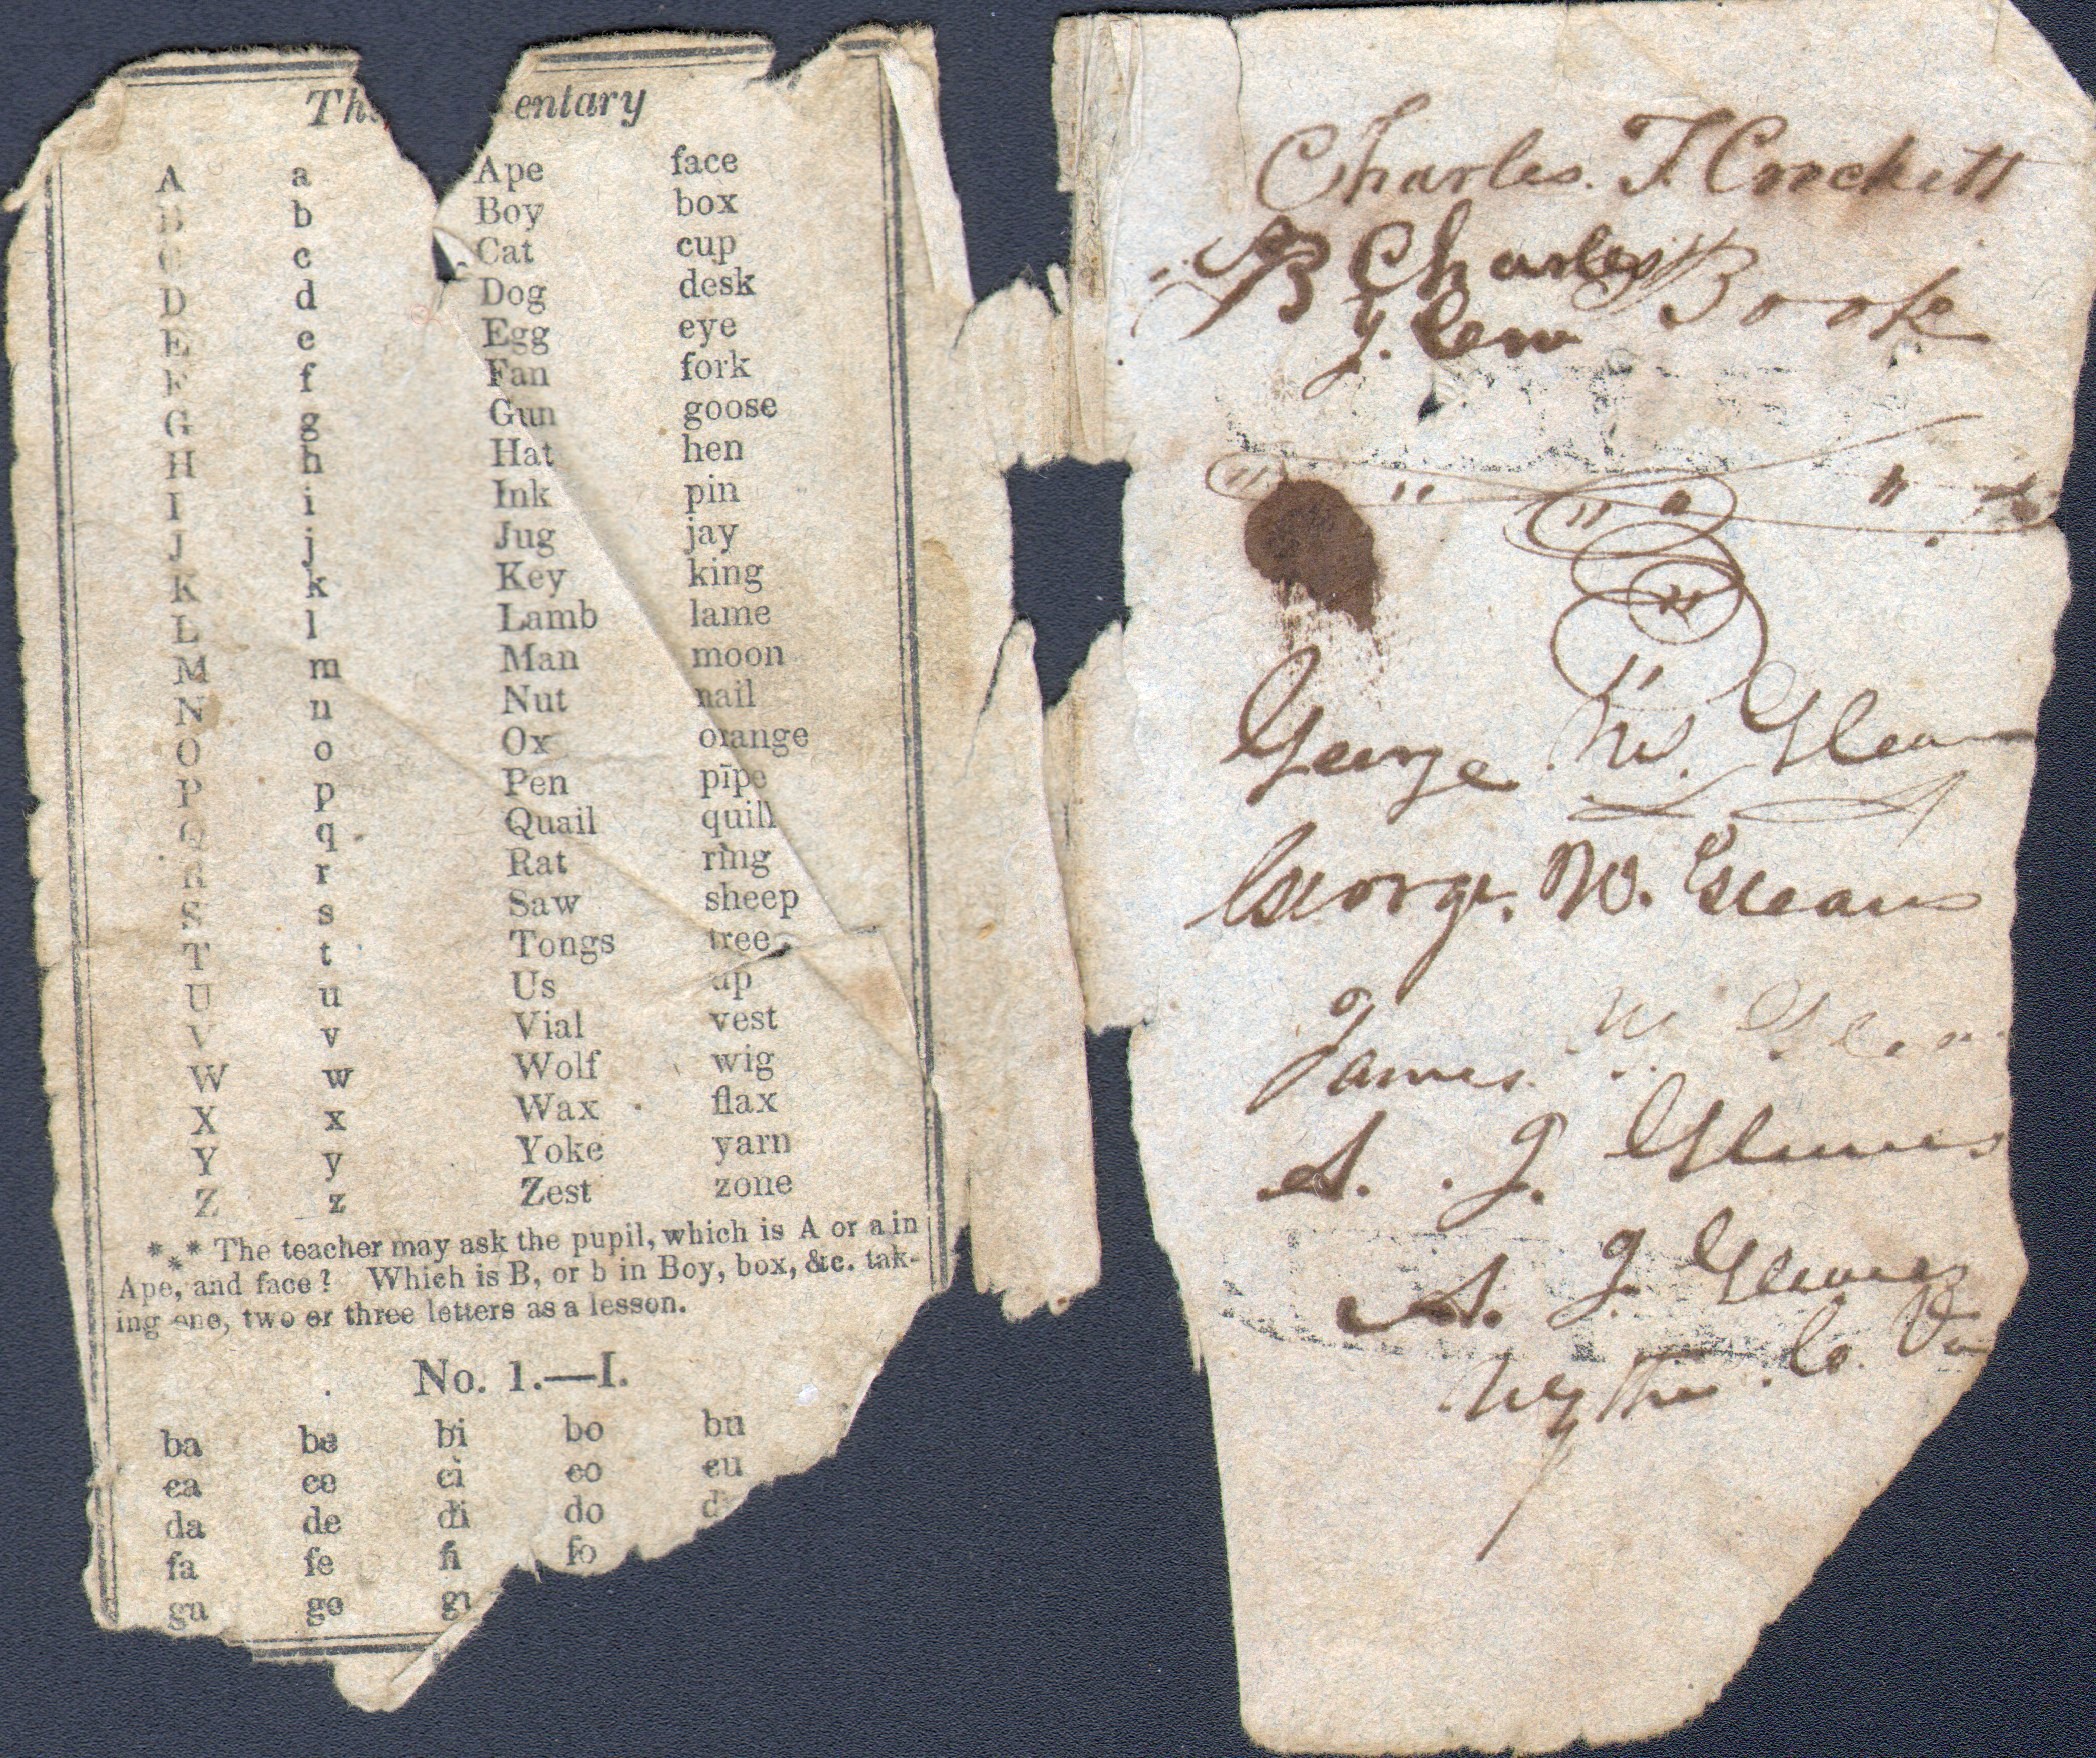 The entary
A a Ape face
B b Boy box
C c Cat cup
D d Dog desk
E e Egg eye
F f Fan fork
G g Gun goose
H h Hat hen
I i Ink pin
J j Jug jay
K k Key king
L l Lamb lame
M m Man moon
N n Nut nail
O o Ox orange
P p Pen pīpe
Q q Quail quill
R r Rat ring
S s Saw sheep
T t Tongs tree
U u Us up
V v Vial vest
W w Wolf wig
X x Wax flax
Y y Yoke yarn
Z z Zest zone
*⁎* The teacher may ask the pupil, which is A or a in
Ape, and face? Which is B, or b in Boy, box, &c. tak-
ing one, two or three letters as a lesson.
No. 1.—I.
ba be bi bo bu
ca ce ci co cu
da de di do d
fa fe fi fo
ga ge gi
Charles. F. Crockett
B Charles Book
George W. Glean
George. W. Gleaves
James W.
S. J. Gleaves
S. J. Gleaves
Wythe Co. Va